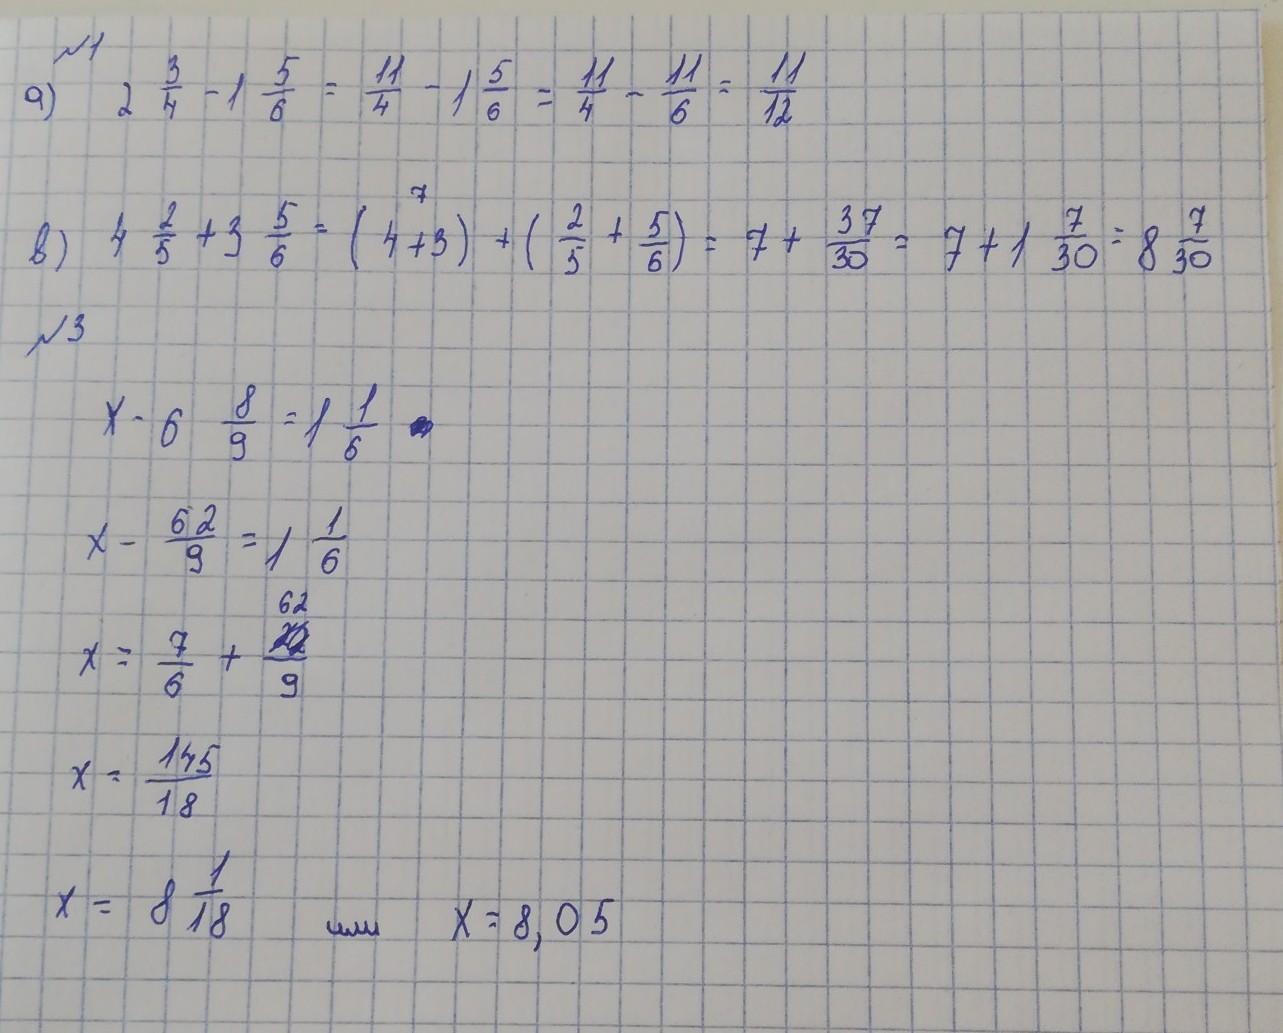 №1
а) 2 3/4 - 1 5/6 = 11/4 - 1 5/6 = 11/4 - 11/6 = 11/12
7
в) 4 2/5 + 3 5/6 = (4+3) + (2/5 + 5/6) = 7 + 37/30 = 7 + 1 7/30 = 8 7/30
№3
x - 6 8/9 = 1 1/6
x - 62/9 = 1 1/6
x = 7/6 + 62/9
x = 145/18
x = 8 1/18 или x = 8,05